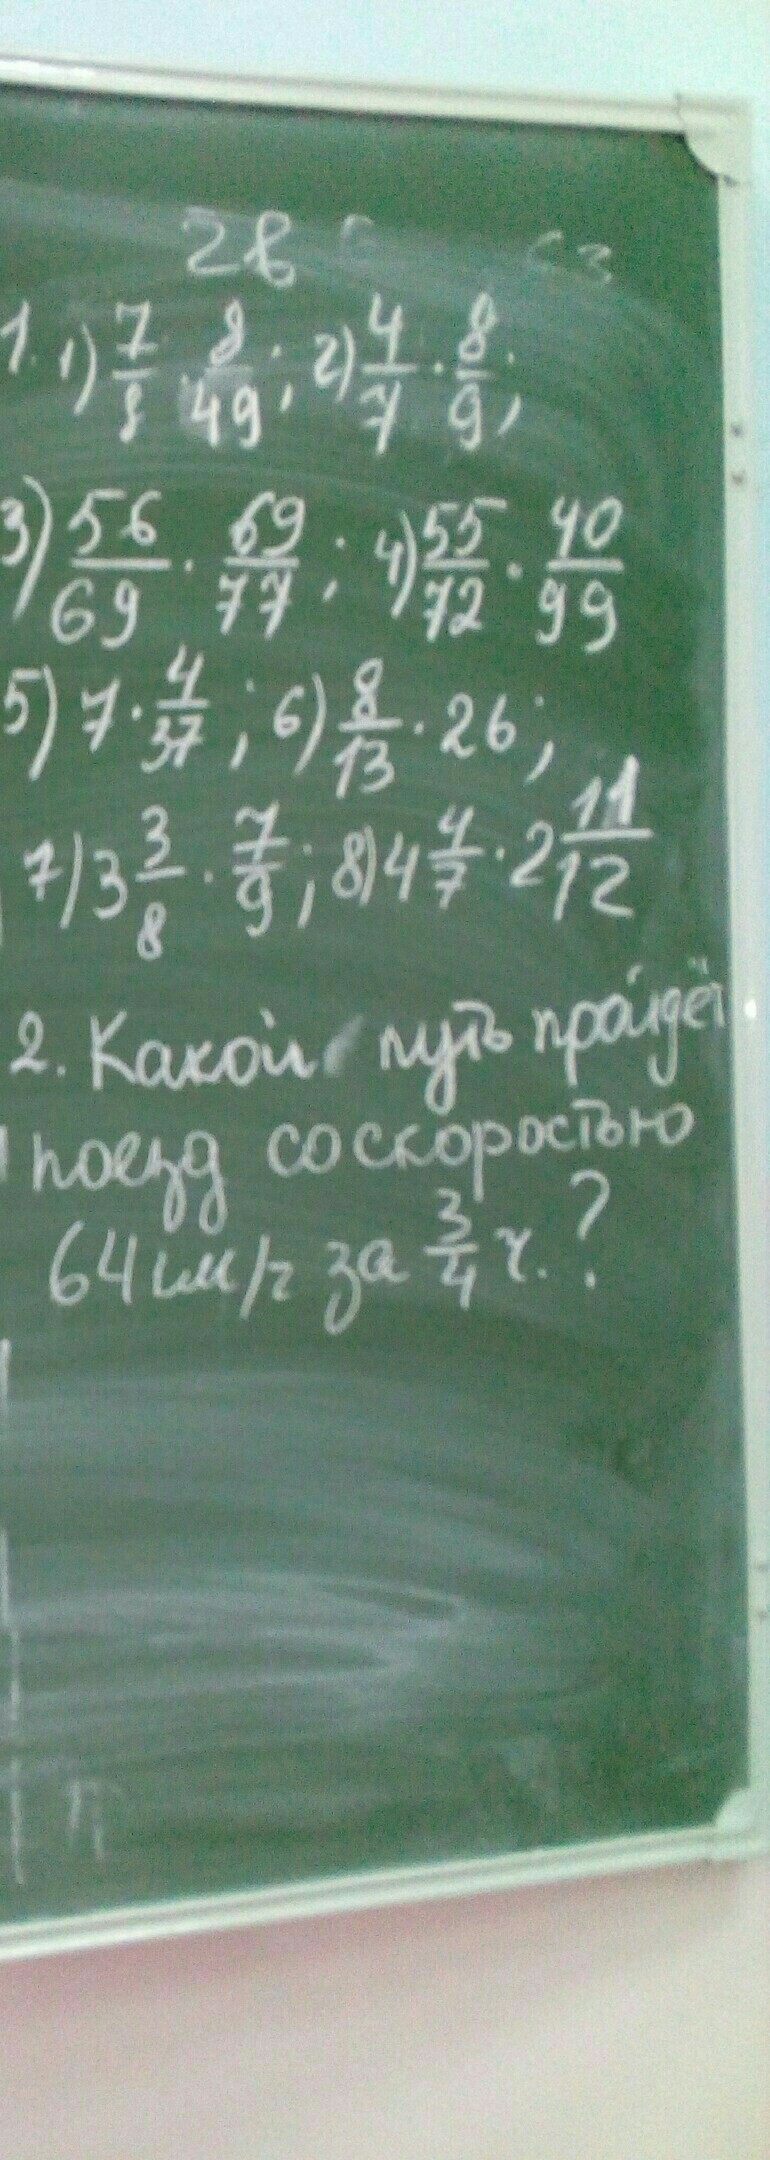 28
1. 1) 7/8 · 8/49; 2) 4/7 · 8/9;
3) 56/69 · 69/77; 4) 55/72 · 40/99
5) 7 · 4/37; 6) 8/13 · 26;
7) 3 3/8 · 7/9; 8) 4 4/7 · 2 11/12
2. Какой путь пройдёт
поезд со скоростью
64 км/ч за 3/4 ч. ?